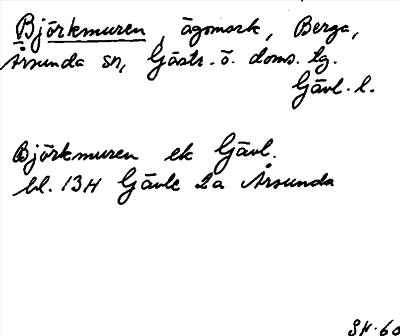 Björkmuren, ägomark, Berga,
Årsunda sn, Gästr. ö. doms. tg.
Gävl. l.
Björkmuren ek Gävl.
bl. 13H Gävle 2a Årsunda
SH. 60